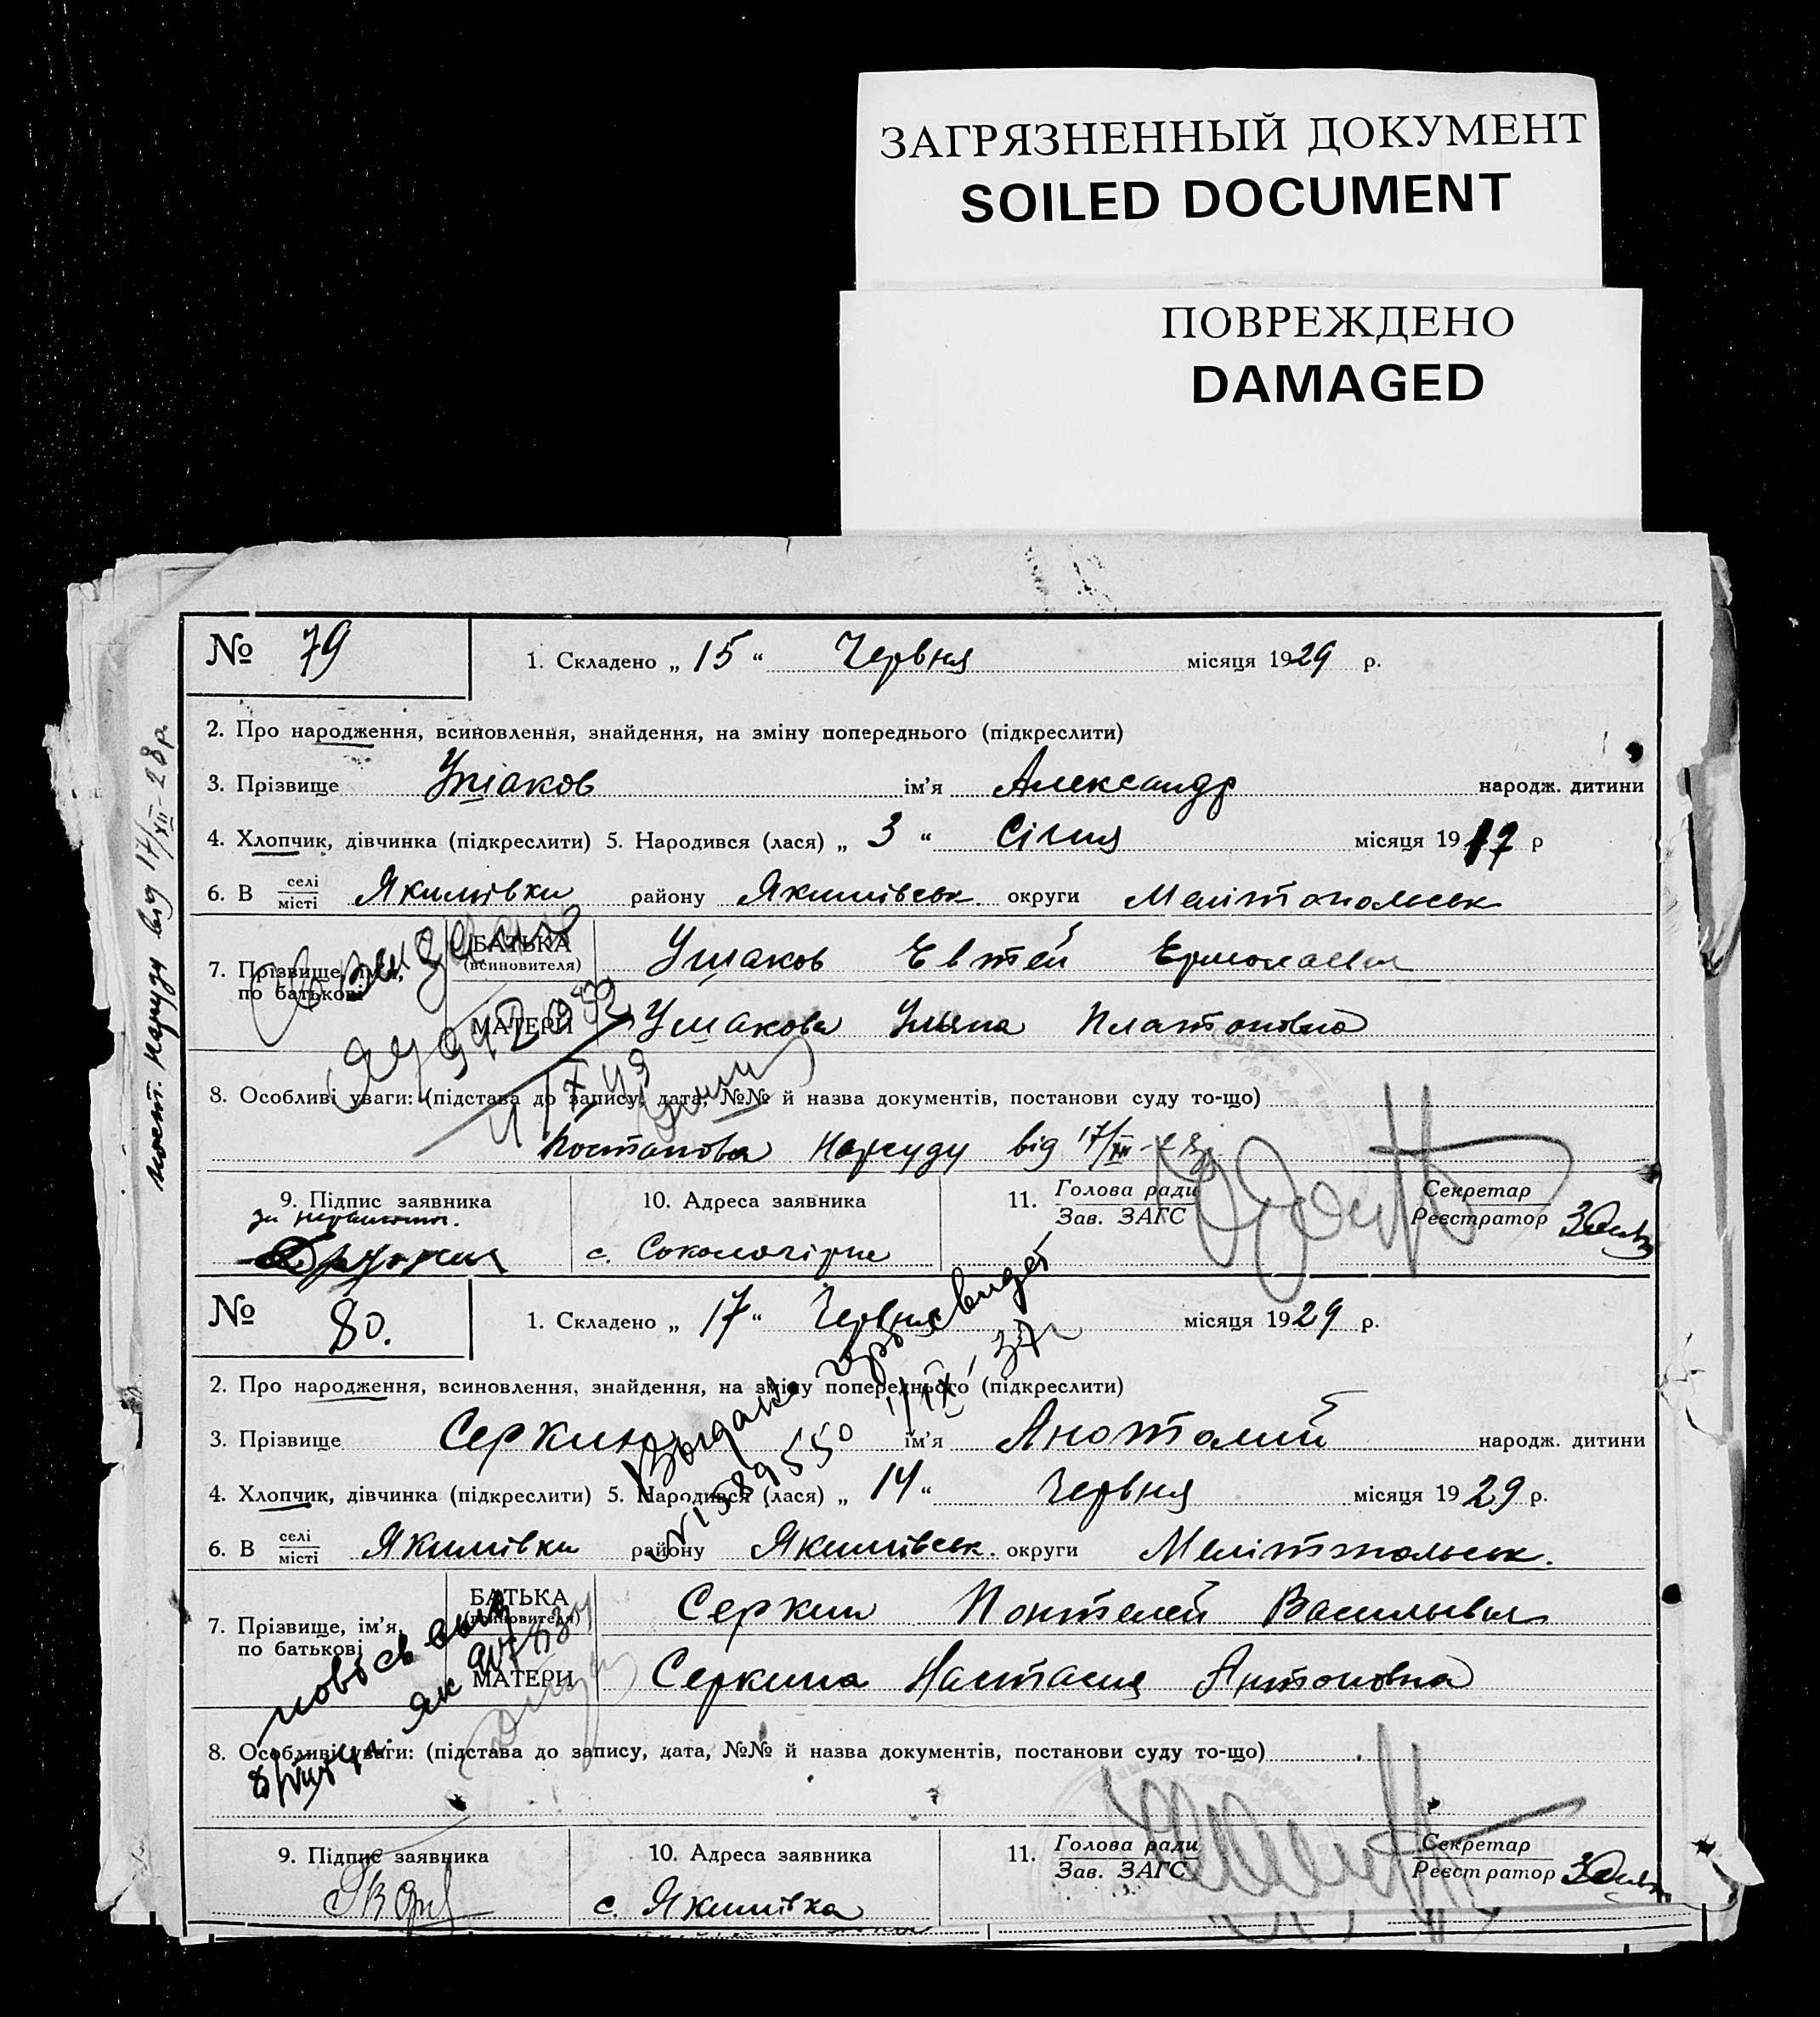 ЗАГРЯЗНЕННЫЙ ДОКУМЕНТ
SOILED DOCUMENT
ПОВРЕЖДЕНО
DAMAGED
№ 79
1. Складено „ 15 “ Червня місяця 1929 р.
2. Про народження, всиновлення, знайдення, на зміну попереднього (підкреслити)
3. Прізвище Ушаков ім'я Александр народж. дитини
4. Хлопчик, дівчинка (підкреслити) 5. Народився (лася) „ 3 “ Січня місяця 1917 р
6. В селі/місті Якимівки району Якимівськ. округи Мелітопольськ
7. Прізвище, ім'я, по батькові
БАТЬКА (всиновителя) Ушаков Евтей Ермолаевич
МАТЕРИ Ушакова Уляна Платоновна
8. Особливі уваги: (підстава до запису, дата, №№ й назва документів, постанови суду то-що)
Постанова Нарсуду від 17/XII-28р.
9. Підпис заявника
10. Адреса заявника
11. Голова ради/Зав. ЗАГС
Секретар/Реєстратор
с. Сокологірне
пост. нарсуду від 17/XII-28 р.
№ 80.
1. Складено „ 17 “ Червня місяця 1929 р.
2. Про народження, всиновлення, знайдення, на зміну попереднього (підкреслити)
3. Прізвище Серкин ім'я Анатолий народж. дитини
4. Хлопчик, дівчинка (підкреслити) 5. Народився (лася) „ 14 “ Червня місяця 1929 р.
6. В селі/місті Якимівки району Якимівськ. округи Мелітопольськ.
Выдано
№ 1589550 1/IX 37г
7. Прізвище, ім'я, по батькові
БАТЬКА (всиновителя) Серкин Пантелей Васильевич
МАТЕРИ Серкина Настасия Антоновна
8. Особливі уваги: (підстава до запису, дата, №№ й назва документів, постанови суду то-що)
9. Підпис заявника
10. Адреса заявника
11. Голова ради/Зав. ЗАГС
Секретар/Реєстратор
с. Якимівка